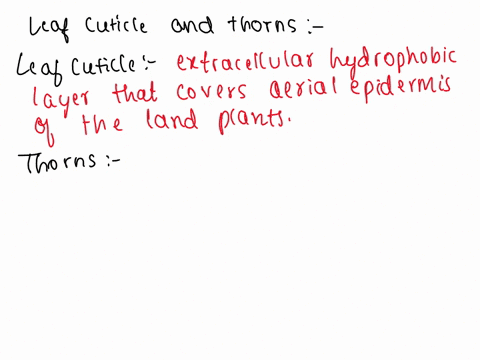 Leaf Cuticle and thorns :-
Leaf Cuticle :- extracellular hydrophobic
layer that covers aerial epidermis
of the land plants.
Thorns :-